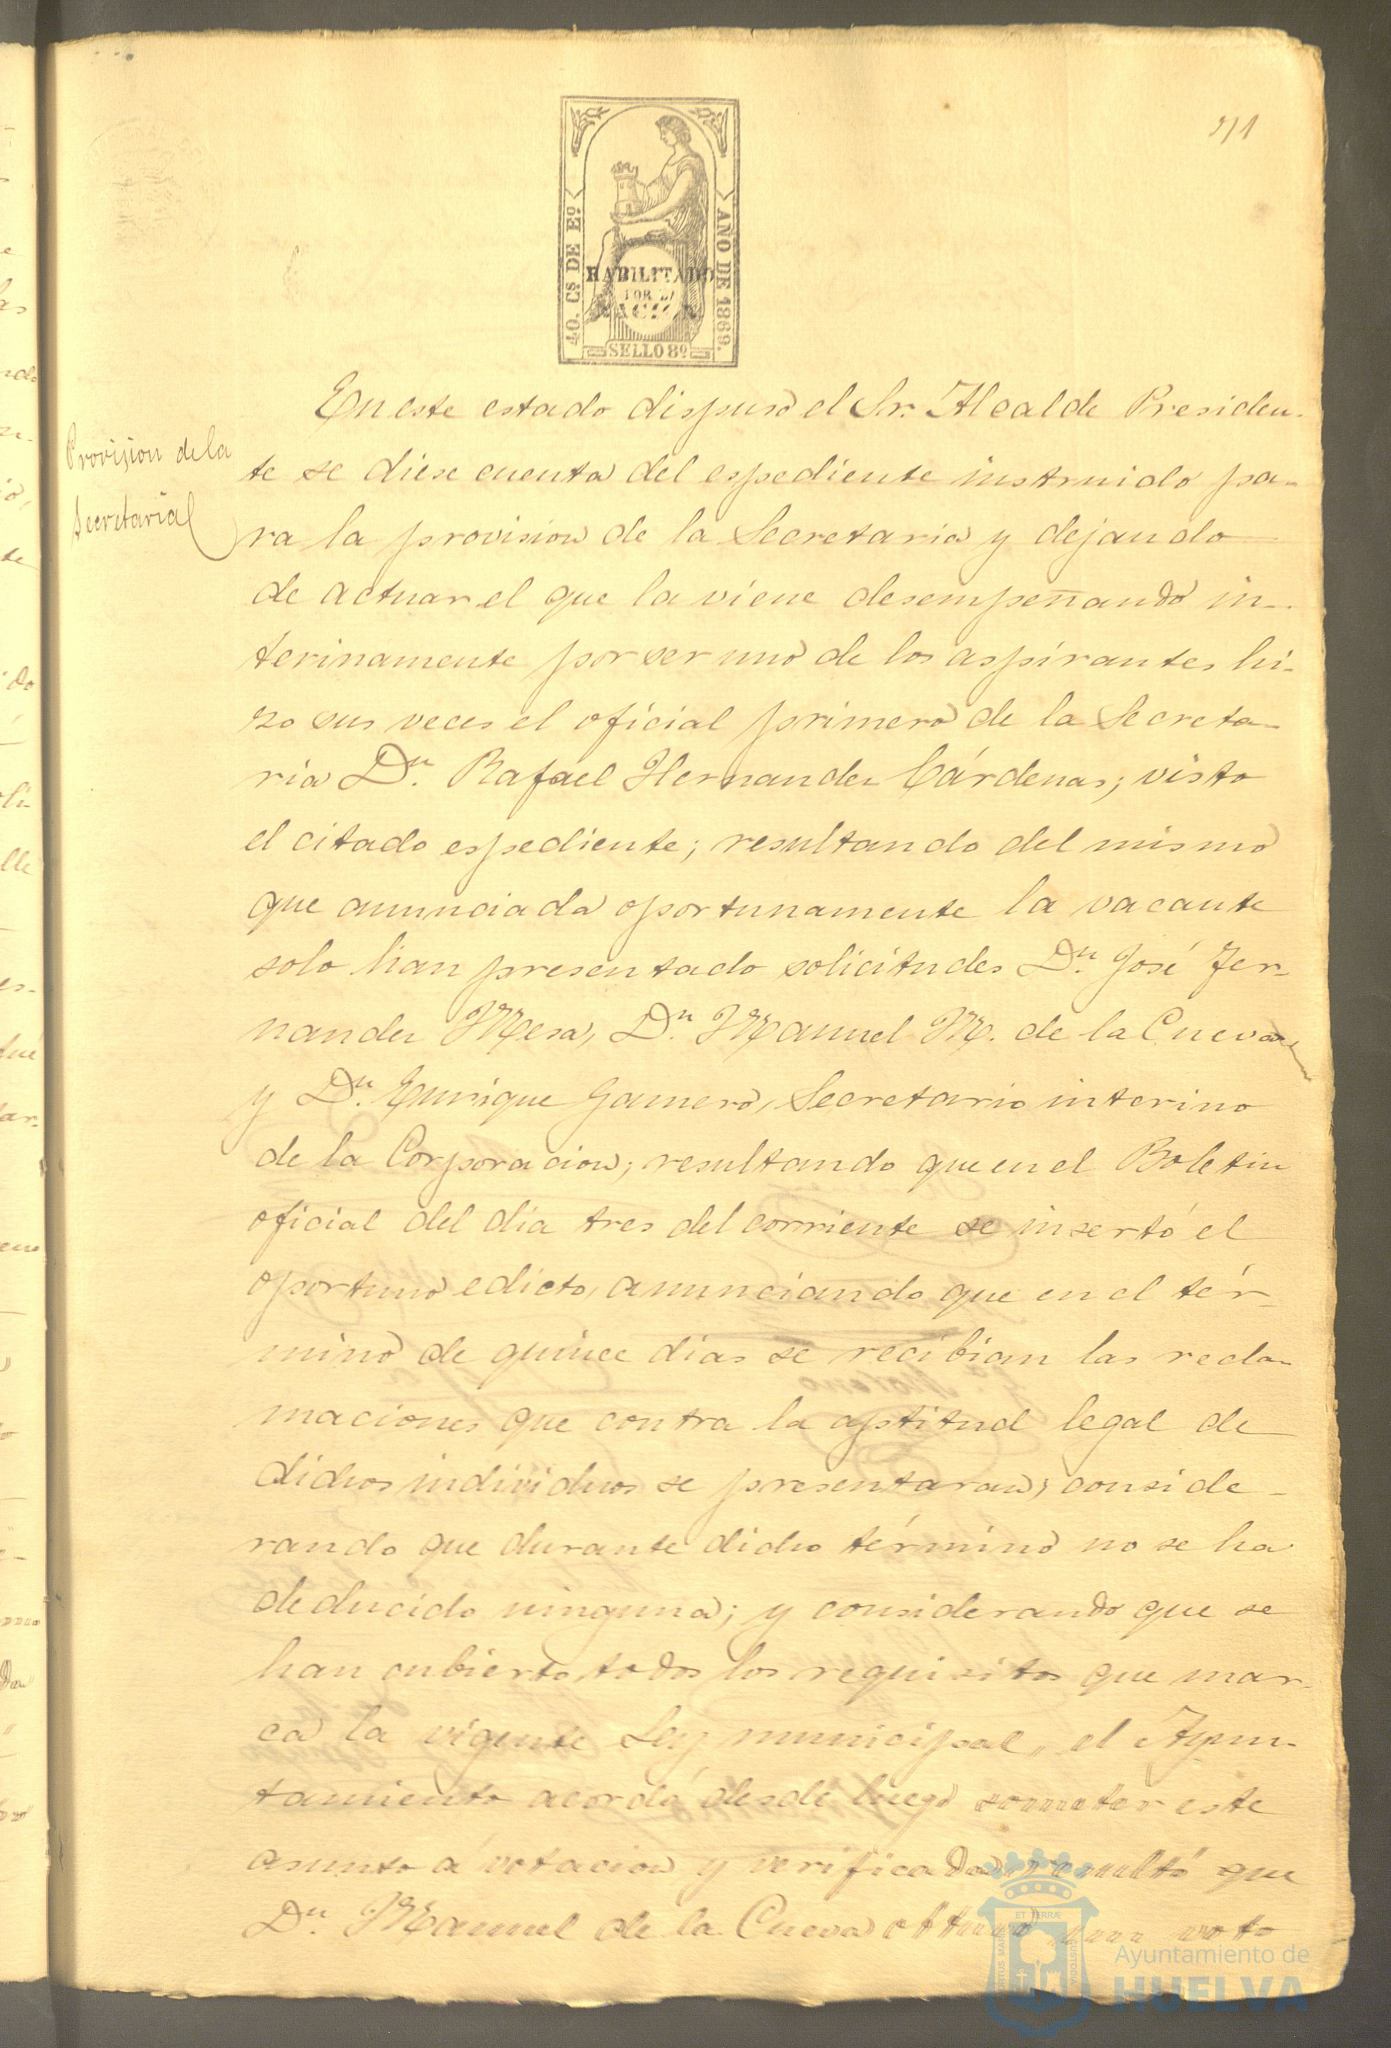 40. Cs DE Eº
AÑO DE 1869.
HABILITADO
POR LA
NACION
SELLO 8º
Provision de la
Secretaria
En este estado dispuso el Sr. Alcalde Presiden-
te se diese cuenta del espediente instruido pa-
ra la provision de la Secretaria y dejando
de actuar el que la viene desempeñando in-
terinamente por ser uno de los aspirantes hi-
zo sus veces el oficial primero de la Secreta-
ria Dn. Rafael Hernandez Cárdenas; visto
el citado espediente; resultando del mismo
que anunciada oportunamente la vacante
solo han presentado solicitudes Dn. José Fer-
nandez Mesa, Dn. Manuel M. de la Cueva
y Dn. Enrique Gamero, Secretario interino
de la Corporacion; resultando que en el Boletin
oficial del dia tres del corriente se insertó el
oportuno edicto, anunciando que en el tér-
mino de quince dias se recibian las recla-
maciones que contra la aptitud legal de
dichos individuos se presentaran; conside-
rando que durante dicho término no se ha
deducido ninguna; y considerando que se
han cubierto todos los requisitos que mar-
ca la vigente Ley municipal, el Ayun-
tamiento acordó desde luego someter este
asunto á votacion y verificada resultó que
Dn. Manuel de la Cueva obtuvo un voto
ET TERRÆ
PORTUS MARIS
CUSTODIA
Ayuntamiento de
HUELVA